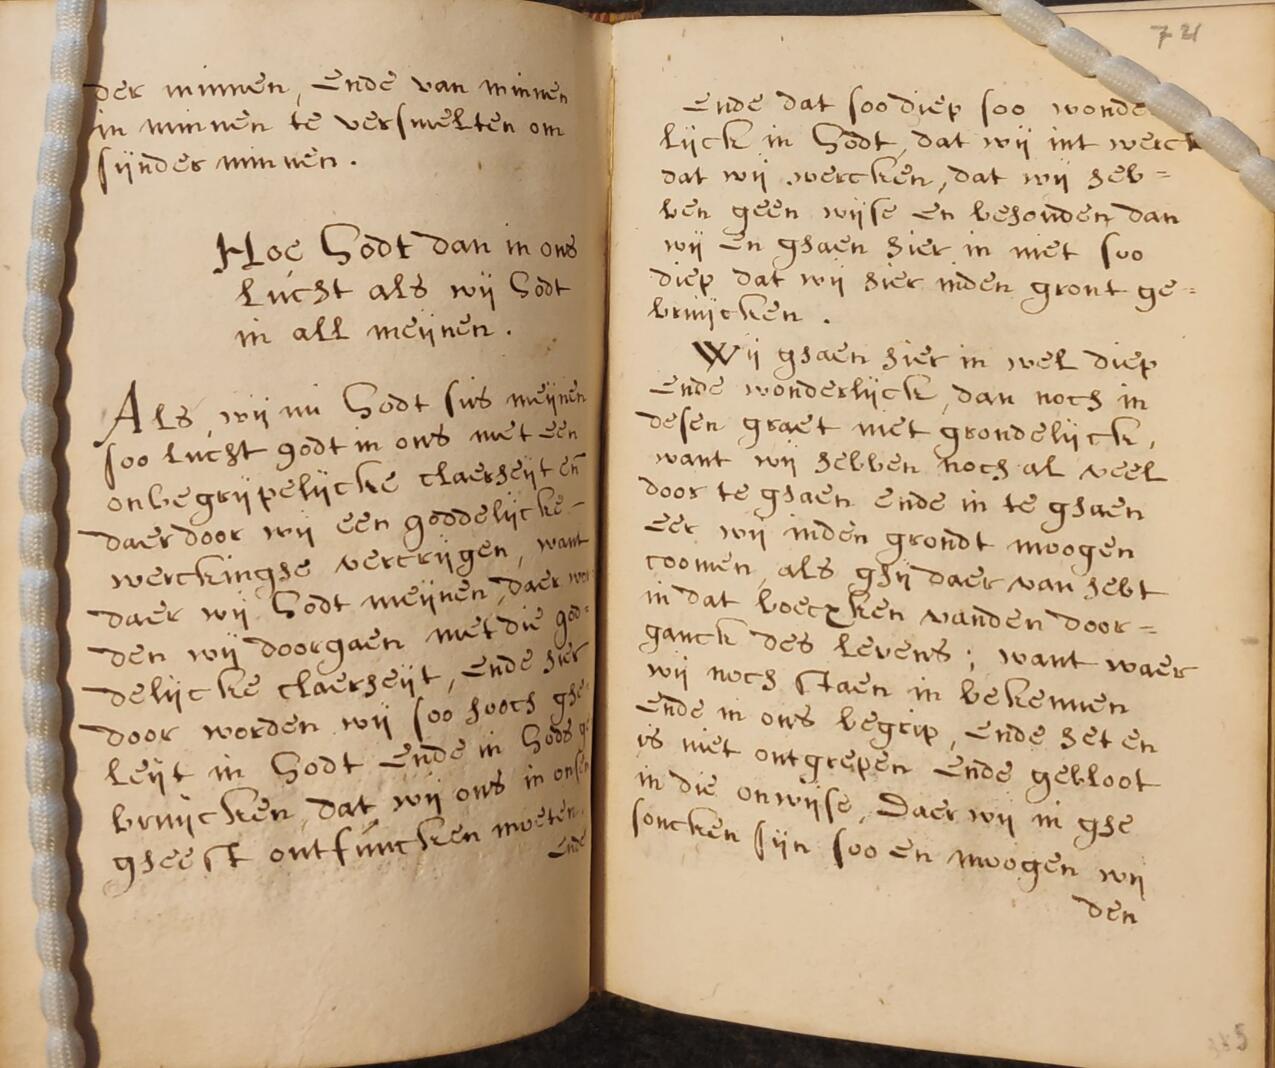 der minnen, ende van minnen
in minnen te versmelten om
sijnder minnen.
Hoe Godt dan in ons
lucht als wij Godt
in all meijnen.
Als wij nu Godt sus meijnen
soo lucht godt in ons met een
onbegrijpelijcke claerheijt en
daer door wij een goddelijcke
werckinghe vercrijgen, want
daer wij Godt meijnen, daer wor
den wij doorgaen met die god=
delijcke claerheijt, ende hier
door worden wij soo hooch ghe=
leijt in Godt ende in Gods ge
bruijcken, dat wij ons in onsen
gheest ontfuncken moeten,
ende
721
Ende dat soo diep soo wonde
lijck in Godt, dat wij int werck
dat wij wercken, dat wij heb=
ben geen wijse en behouden dan
wij en ghaen hier in niet soo
diep dat wij hier inden gront ge=
bruijcken.
Wij ghaen hier in wel diep
ende wonderlijck, dan noch in
desen graet niet grondelijck,
want wij hebben noch al veel
door te ghaen ende in te ghaen
eer wij inden grondt moogen
coomen, als ghij daer van hebt
in dat boecxken vanden door=
ganck des levens; want waer
wij noch staen in bekennen
ende in ons begrip, ende het en
is niet ontgrepen ende gebloot
in die onwijse, Daer wij in ghe
soncken sijn soo en moogen wij
den